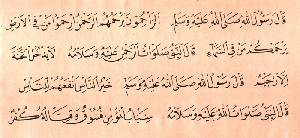 قال رسول الله صلى الله عليه وسلم الراحمون يرحمهم الرحمن ارحموا من في الارض
يرحمكم من في السماء قال النبي صلوات الرحمن عليه وسلامه لا يدخل الجنة
الا رحيم قال رسول الله صلى الله عليه وسلم خير الناس انفعهم للناس
قال النبي صلوات الله عليه وسلامه سباب المؤمن فسوق وقتاله كفر